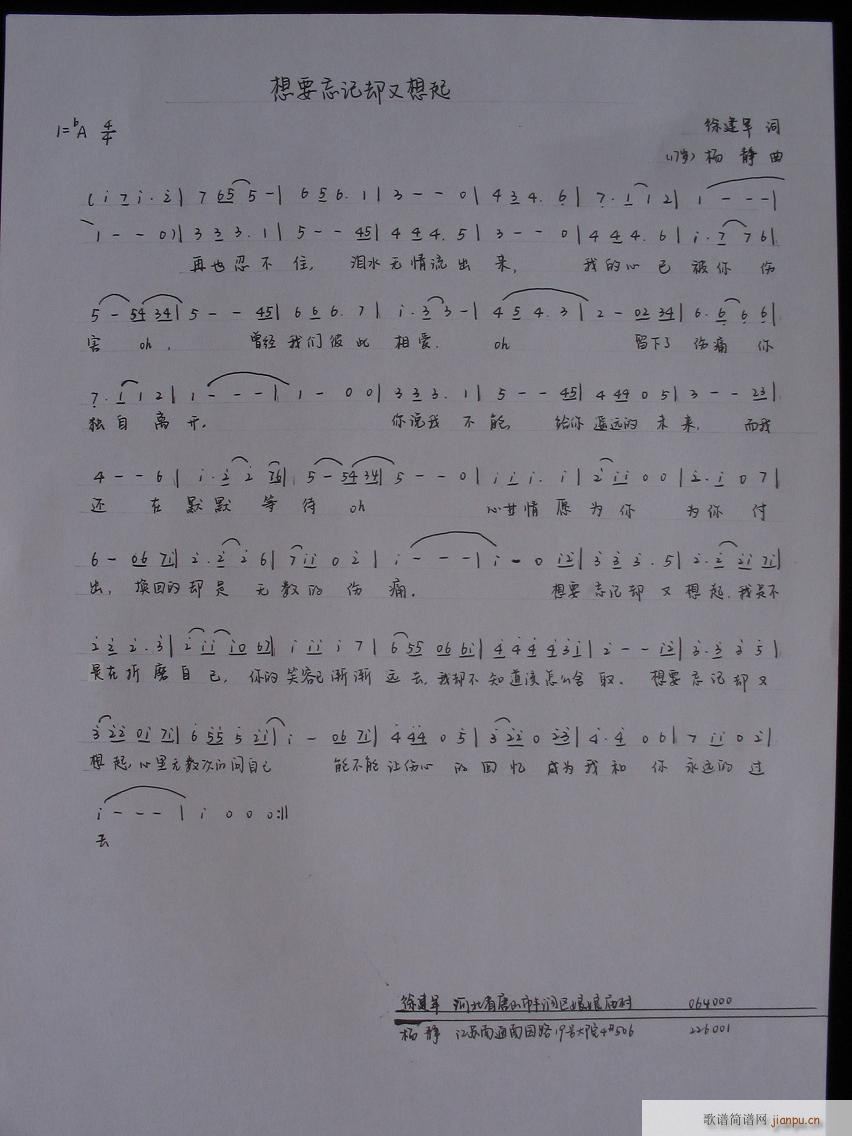 想要忘记却又想起
1=ᵇA 4/4
徐建军 词
(17岁) 杨静 曲
(i 7 i · 2 | 7 65 5 - | 6 5 6 · 1 | 3 - - 0 | 4 3 4 · 6 | 7 · 1 1 2 | 1 - - - |
1 - - 0) | 3 3 3 · 1 | 5 - - 45 | 4 4 4 · 5 | 3 - - 0 | 4 4 4 · 6 | i · 7 7 6 |
再也忍不住, 泪水无情流出来, 我的心已被你伤
5 - 54 34 | 5 - - 45 | 6 6 6 · 7 | i · 3 3 - | 4 5 4 · 3 | 2 - 02 34 | 6 · 6 6 6 |
害 oh, 曾经我们彼此相爱. oh 留下了伤痛你
7 · 1 1 2 | 1 - - - | 1 - 0 0 | 3 3 3 · 1 | 5 - - 45 | 4 44 0 5 | 3 - - 23 |
独自离开. 你说我不能, 给你遥远的未来, 而我
4 - - 6 | i · 2 2 76 | 5 - 54 34 | 5 - - 0 | i i i · i | 2 i i 0 0 | 2 · i 0 7 |
还在默默等待 oh 心甘情愿为你 为你付
6 - 06 7i | 2 · 2 2 6 | 7 ii 0 2 | i - - - | i - 0 i2 | 3 3 3 · 5 | 2 · 2 2i 7i |
出, 换回的却是无数的伤痛. 想要忘记却又想起, 我是不
2 2 2 · 3 | 2 ii i0 67 | i ii i 7 | 6 55 06 6i | 4 4 4 4 3 i | 2 - - i2 | 3 · 3 3 5 |
是在折磨自己, 你的笑容已渐渐远去, 我却不知道该怎么舍取. 想要忘记却又
3 22 0i 7i | 6 55 5 2i | i - 06 7i | 4 44 0 5 | 3 22 0 23 | 4 · 4 0 6 | 7 ii 0 2 |
想起, 心里无数次的问自己 能不能让伤心的回忆 成为我和你永远的过
i - - - | i 0 0 0 :||
去
徐建军 河北省唐山市丰润区娘娘庙村 064000
杨静 江苏南通南园路19号大院4#506 226001
歌谱简谱网 jianpu.cn